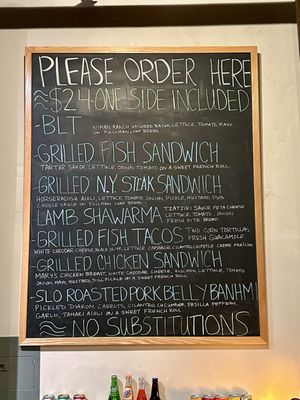 PLEASE ORDER HERE
≈$24-ONE SIDE INCLUDED
-BLT NIMAN RANCH UNCURED BACON, LETTUCE, TOMATO, MAYO
ON PULLMAN LOAF BREAD.
-GRILLED FISH SANDWICH
TARTAR SAUCE, LETTUCE, ONION, TOMATO ON A SWEET FRENCH ROLL.
-GRILLED N.Y. STEAK SANDWICH
HORSERADISH AIOLI, LETTUCE, TOMATO, ONION, PICKLE, MUSTARD, PUB
CHEESE SAUCE ON PULLMAN LOAF BREAD.
-LAMB SHAWARMA TZATZIKI SAUCE, FETA CHEESE
LETTUCE, TOMATO, ONION,
FRESH PITA BREAD.
-GRILLED FISH TACOS TWO CORN TORTILLAS,
FRESH GUACAMOLE,
WHITE CHEDDAR CHEESE, BLACK OLIVE, LETTUCE, CABBAGE, CILANTRO, CHIPOTLE CREME FRAICHE
-GRILLED CHICKEN SANDWICH
MARYS CHICKEN BREAST, WHITE CHEDDAR CHEESE, AVOCADO, LETTUCE, TOMATO
ONION, MAYO, MUSTARD, DILL PICKLE ON A SWEET FRENCH ROLL
-SLO ROASTED PORK BELLY BANH MI
PICKLED DIAKON, CARROTS, CILANTRO, CUCUMBER, PASILLA PEPPERS,
GARLIC, TAMARI AIOLI ON A SWEET FRENCH ROLL.
≈NO SUBSTITUTIONS